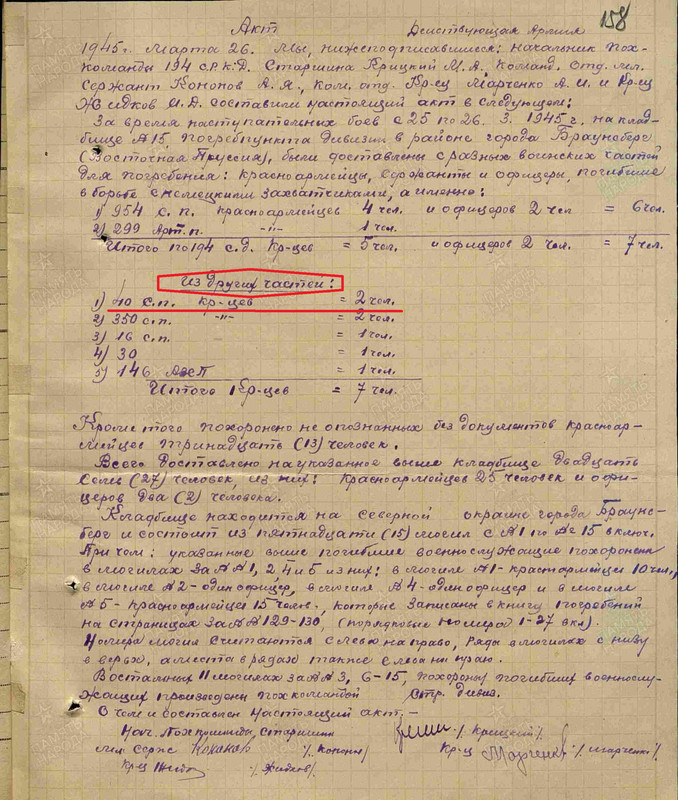 158
Акт Действующая Армия
1945г. Марта 26. Мы, нижеподписавшиеся: Начальник пох-
команды 194 с.р.к.д. Старшина Крицкий М.А. Команд. отд. мл.
Сержант Кононов А.Я., Ком. отд. Кр-ец Марченко А.И. и Кр-ец
Жидков И.Д. составили настоящий акт в следующем:
За время наступательных боев с 25 по 26. 3. 1945 г. на клад-
бище №15, погребпункта дивизии в районе города Браунсберг
(Восточная Пруссия), были доставлены с разных воинских частей
для погребения: красноармейцы, сержанты и офицеры, погибшие
в борьбе с немецкими захватчиками, а именно:
1) 954 с.п. красноармейцев 4 чел. и офицеров 2 чел = 6 чел.
2) 299 Арт.п. -"- 1 чел.
Итого по 194 с.д. Кр-цев = 5 чел. и офицеров 2 чел. = 7 чел.
Из других частей:
1) 40 с.п. Кр-цев = 2 чел.
2) 350 с.п. -"- = 2 чел.
3) 16 с.п. = 1 чел.
4) 30 = 1 чел.
5) 146 = 1 чел.
Итого Кр-цев = 7 чел.
Кроме того похоронено не опознанных без документов красноар-
мейцев тринадцать (13) человек.
Всего доставлено на указанное выше кладбище двадцать
семь (27) человек, из них: красноармейцев 25 человек и офи-
церов два (2) человека.
Кладбище находится на Северной окраине города Браунс-
берг и состоит из пятнадцати (15) могил с №1 по №15 включ.
Причем: указанные выше погибшие военнослужащие похоронены
в могилах за №№1, 2, 4 и 5 из них: в могиле №1 - красноармейцы 10 чел.,
в могиле №2 - один офицер, в могиле №4 - один офицер и в могиле
№5 - красноармейцы 15 чел., которые записаны в книгу погребений
на страницах за №№129-130, (порядковые номера 1-27 вкл).
Номера могил считаются слева на право, ряды в могилах с низу
в верх, а места в рядах также слева на право.
В остальных 11 могилах за №№ 3, 6-15, похороны погибших военнослу-
жащих произведены похкомандой стр. дивиз.
О чем и составлен настоящий акт.-
Нач. Похкоманды, Старшина /Крицкий/
мл серж Кононов /Кононов/ Кр-ц Марченко /Марченко/
Кр-ц Жидк /Жидков/